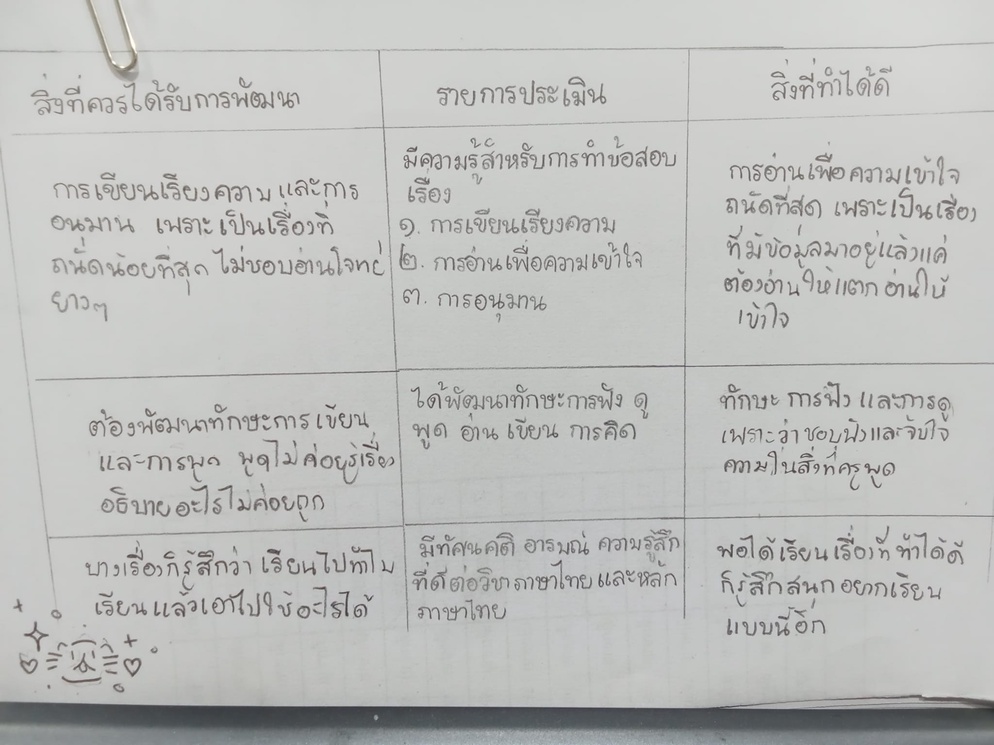 สิ่งที่ควรได้รับการพัฒนา
รายการประเมิน
สิ่งที่ทำได้ดี
การเขียนเรียงความ และการ
อนุมาน เพราะเป็นเรื่องที่
ถนัดน้อยที่สุด ไม่ชอบอ่านโจทย์
ยาวๆ
มีความรู้สำหรับการทำข้อสอบ
เรื่อง
๑. การเขียนเรียงความ
๒. การอ่านเพื่อความเข้าใจ
๓. การอนุมาน
การอ่านเพื่อความเข้าใจ
ถนัดที่สุด เพราะเป็นเรื่อง
ที่มีข้อมูลมาอยู่แล้วแค่
ต้องอ่านให้แตก อ่านให้
เข้าใจ
ต้องพัฒนาทักษะการเขียน
และการพูด พูดไม่ค่อยรู้เรื่อง
อธิบายอะไรไม่ค่อยถูก
ได้พัฒนาทักษะการฟัง ดู
พูด อ่าน เขียน การคิด
ทักษะ การฟัง และการดู
เพราะว่าชอบฟังและจับใจ
ความในสิ่งที่ครูพูด
บางเรื่องก็รู้สึกว่า เรียนไปทำไม
เรียนแล้วเอาไปใช้อะไรได้
มีทัศนคติ อารมณ์ ความรู้สึก
ที่ดีต่อวิชาภาษาไทยและหลัก
ภาษาไทย
พอได้เรียนเรื่องที่ ทำได้ดี
ก็รู้สึกสนุกอยากเรียน
แบบนี้อีก